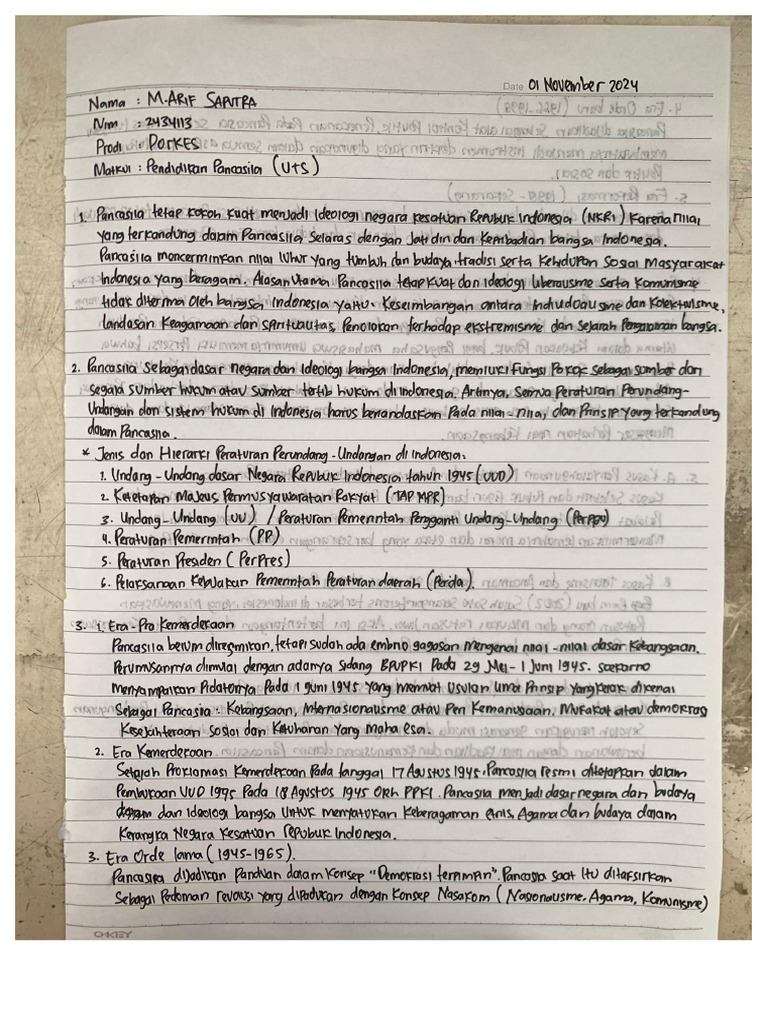 Date 01 November 2024
Nama : M. ARIF SAPUTRA
Nim : 2434113
Prodi : PORKES
Matkul : Pendidikan Pancasila (UTS)
1. Pancasila tetap kokoh kuat menjadi Ideologi negara kesatuan Republik Indonesia (NKRI) karena nilai
yang terkandung dalam Pancasila selaras dengan jati diri dan Kepribadian bangsa Indonesia.
Pancasila moncerminkan nilai luhur yang tumbuh dan budaya, tradisi serta kehidupan sosial Masyarakat
Indonesia yang beragam. Alasan Utama Pancasila tetap kuat dan ideologi liberalisme serta Komunisme
tidak diterima oleh bangsa Indonesia yaitu. Keseimbangan antara Individualisme dan Kolektivisme,
landasan Keagamaan dan spiritualitas, Penolakan terhadap ekstremisme dan sejarah Pengalaman bangsa.
2. Pancasila sebagai dasar negara dan Ideologi bangsa Indonesia, memiliki fungsi Pokok sebagai sumber dari
segala sumber hukum atau sumber tertib hukum di indonesia. Artinya, Semua Peraturan Perundang-
Undangan dan sistem hukum di Indonesia harus berlandaskan Pada nilai-nilai, dan Prinsip yang terkandung
dalam Pancasila.
* Jenis dan Hierarki Peraturan Perundang-Undangan di Indonesia:
1. Undang-Undang dasar Negara Republik Indonesia tahun 1945 (UUD)
2. Ketetapan Majelis Permusyawaratan Rakyat (TAP MPR)
3. Undang-Undang (UU) / Peraturan Pemerintah Pengganti Undang-Undang (Perppu)
4. Peraturan Pemerintah (PP)
5. Peraturan Presiden (PerPres)
6. Pelaksanaan Kebijakan Pemerintah Peraturan daerah (Perda).
3. 1. Era-Pra Kemerdekaan
Pancasila belum diresmikan, tetapi sudah ada embrio gagasan mengenai nilai-nilai dasar Kebangsaan.
Perumusannya dimulai dengan adanya Sidang BPUPKI Pada 29 Mei-1 Juni 1945. Soekarno
menyampaikan Pidatonya Pada 1 Juni 1945 yang memuat usulan lima Prinsip yang kelak dikenal
Sebagai Pancasila : Kebangsaan, Internasionalisme atau Peri Kemanusiaan. Mufakat atau demokrasi
Kesejahteraan sosial dan Ketuhanan yang maha esa.
2. Era Kemerdekaan
Setelah Proklamasi Kemerdekaan Pada tanggal 17 Agustus 1945, Pancasila resmi ditetapkan dalam
Pembukaan UUD 1945 Pada 18 Agustus 1945 Oleh PPKI. Pancasila menjadi dasar negara dan budaya
dan ideologi bangsa untuk menyatukan Keberagaman etnis, Agama dan budaya dalam
Kerangka Negara Kesatuan republik Indonesia.
3. Era Orde lama (1945-1965).
Pancasila dijadikan Panduan dalam Konsep "Demokrasi terpimpin". Pancasila saat itu ditafsirkan
Sebagai Pedoman revolusi yang dipadukan dengan Konsep Nasakom (Nasionalisme, Agama, Komunisme)
O-KEY